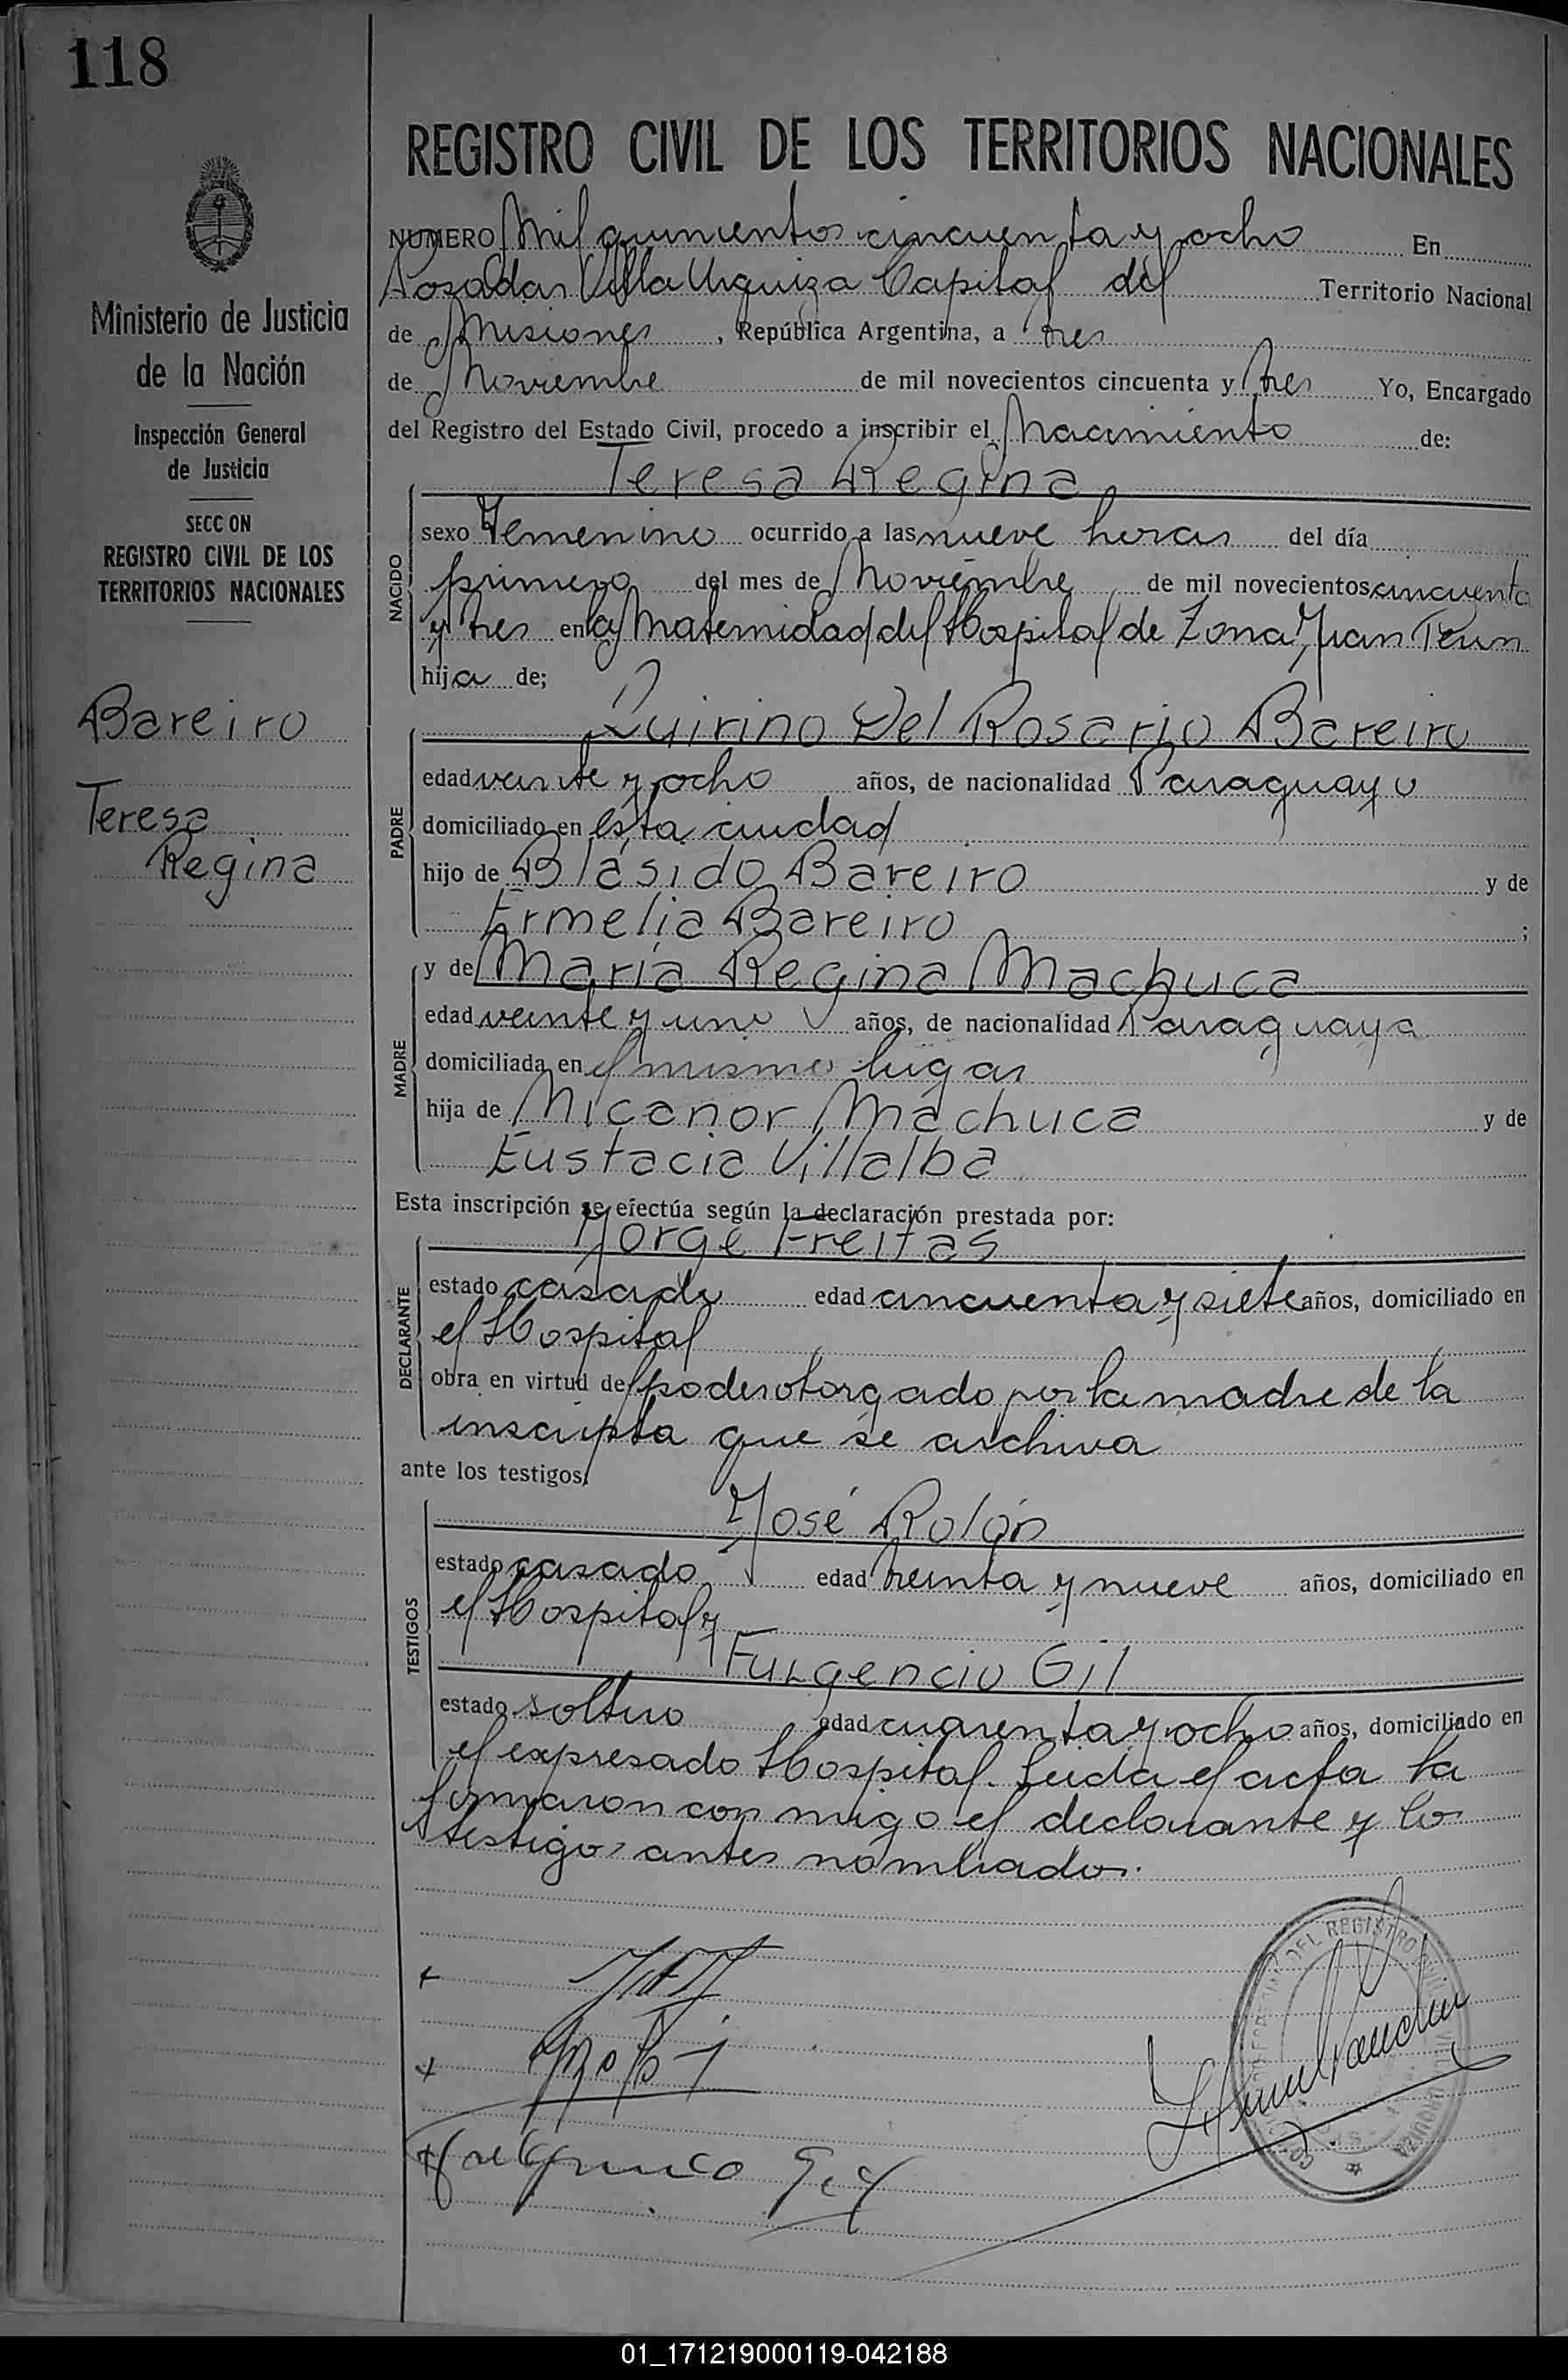 118
REGISTRO CIVIL DE LOS TERRITORIOS NACIONALES
Ministerio de Justicia
de la Nación
Inspección General
de Justicia
SECC ON
REGISTRO CIVIL DE LOS
TERRITORIOS NACIONALES
Bareiro
Teresa
Regina
NUMERO Mil quinientos cincuenta y ocho En
Posadas Villa Urquiza Capital del Territorio Nacional
de Misiones, República Argentina, a tres
de Noviembre de mil novecientos cincuenta y tres Yo, Encargado
del Registro del Estado Civil, procedo a inscribir el Nacimiento de:
Teresa Regina
NACIDO
sexo Femenino ocurrido a las nueve horas del día
primero del mes de Noviembre de mil novecientos cincuenta
y tres en la Maternidad del Hospital de Zona Juan Perón
hija de;
PADRE
Quirino Del Rosario Bareiro
edad veinte y ocho años, de nacionalidad Paraguayo
domiciliado en esta ciudad
hijo de Blásido Bareiro y de
Ermelia Bareiro ;
MADRE
y de María Regina Machuca
edad veinte y uno años, de nacionalidad Paraguaya
domiciliada en el mismo lugar
hija de Nicanor Machuca y de
Eustacia Villalba
Esta inscripción se efectúa según la declaración prestada por:
DECLARANTE
Jorge Freitas
estado casado edad cincuenta y siete años, domiciliado en
el Hospital
obra en virtud del poder otorgado por la madre de la
inscripta que se archiva
ante los testigos,
TESTIGOS
José Rolón
estado casado edad treinta y nueve años, domiciliado en
el Hospital y
Fulgencio Gil
estado soltero edad cuarenta y ocho años, domiciliado en
el expresado Hospital. Leida el acta la
firmaron con migo el declarante y los
testigos antes nombrados.
Fulgencio Gil
DEL REGISTRO CIVIL
VILLA URQUIZA
01_171219000119-042188